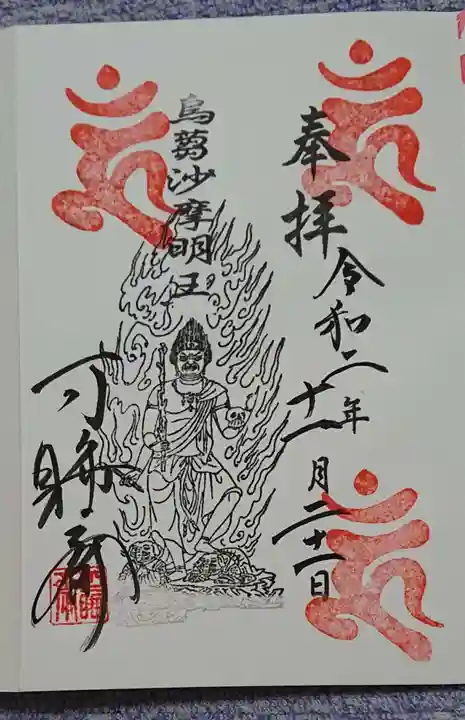 奉拝
令和二年十一月二十一日
烏蒭沙摩明王
可睡斎